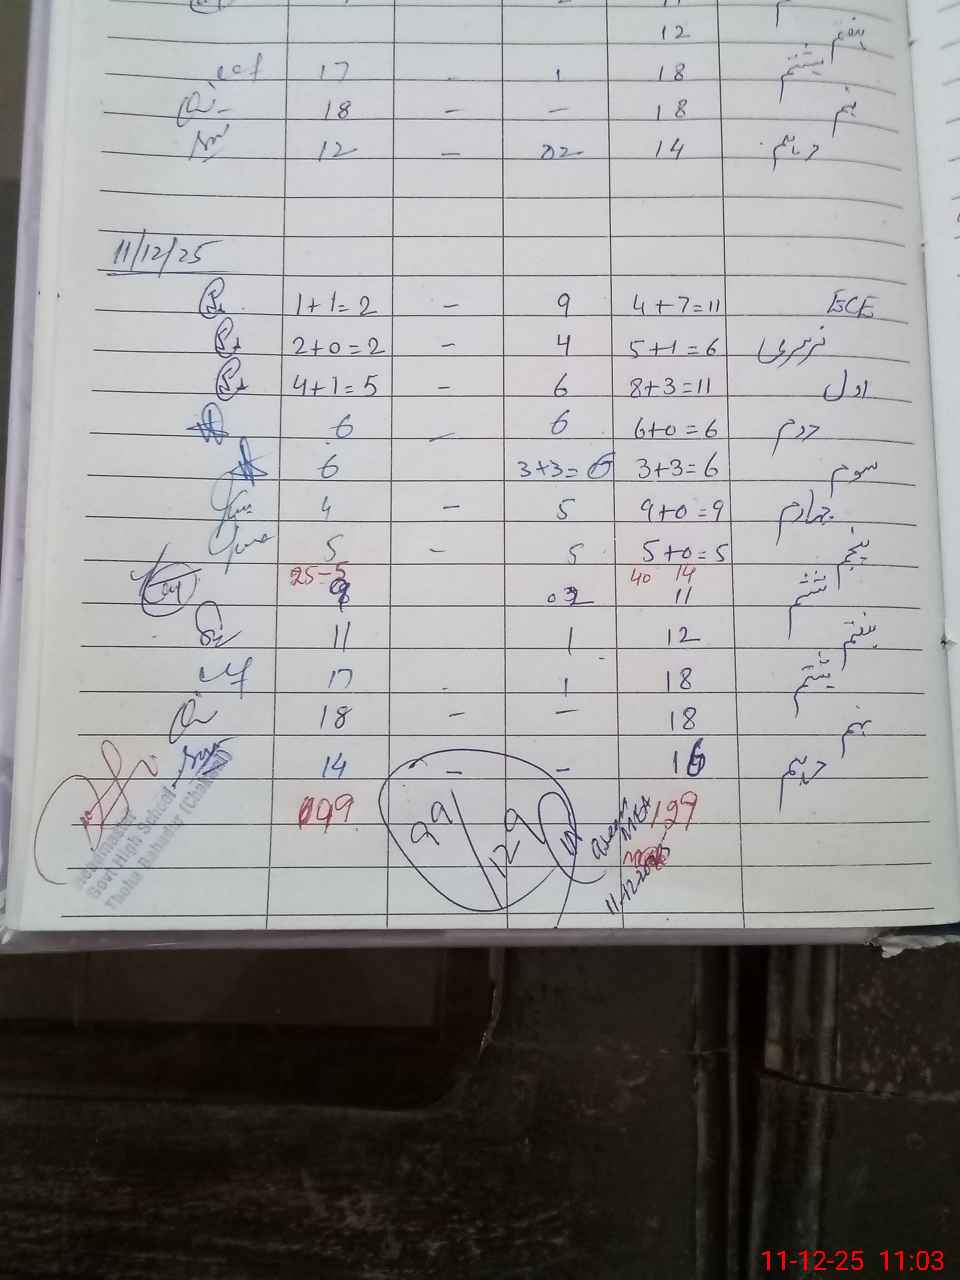 12 ہفتم
17 - 1 18 ہشتم
18 - - 18 نہم
12 - 02 14 دہم
11/12/25
1+1=2 - 9 4+7=11 ECE
2+0=2 - 4 5+1=6 نرسری
4+1=5 - 6 8+3=11 اول
6 - 6 6+0=6 دوم
6 3+3=6 3+3=6 سوم
4 - 5 9+0=9 چہارم
5 - 5 5+0=5 پنجم
25-5 40 14
11 ششم
11 1 12 ہفتم
17 - 1 18 ہشتم
18 - - 18 نہم
14 - - 16 دہم
99 99/129 129
MEA
11-12-2025
Headmaster
Govt High School
Thoha Bahadur (Chakwal)
11-12-25 11:03